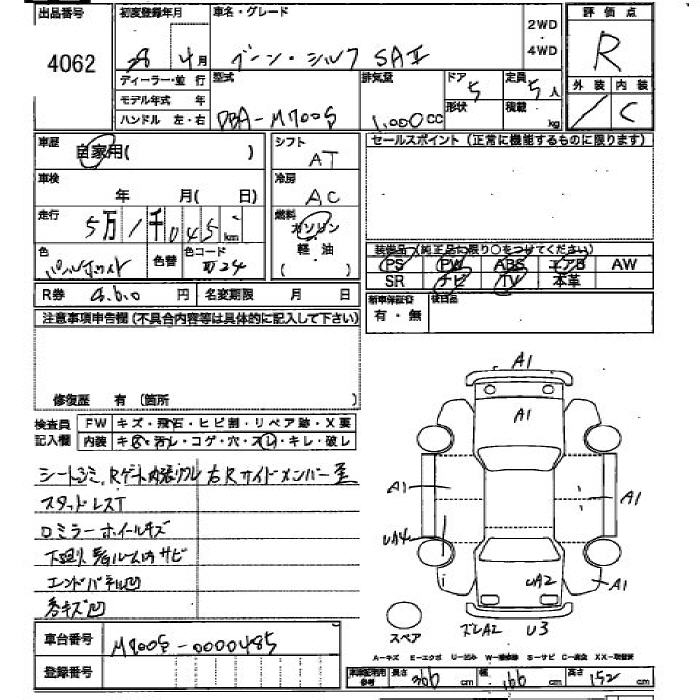 出品番号 初度登録年月 車名・グレード 評価点
4062 4月 ブーン・シルク SAⅡ 2WD ・ 4WD R
外装 内装
C
ディーラー・並行 型式 排気量 ドア 5 定員 5人
モデル年式 年 形状 積載 kg
ハンドル 左・右 DBA-M700S 1.000CC
車歴 自家用( ) シフト AT セールスポイント(正常に機能するものに限ります)
車検 年 月( 日) 冷房 AC
走行 5万1千045km 燃料 ガソリン 軽・油 ( )
色 パールホワイト 色替 色コード W24
装備品(純正品に限り○をつけてください)
PS PW ABS エアB AW
SR ナビ TV 本革
R券 円 名変期限 月 日
新車保証書 有・無 後日品
注意事項申告欄(不具合内容等は具体的に記入して下さい)
修復歴 有(箇所 )
検査員記入欄 FW キズ・飛石・ヒビ割・リペア跡・X要
内装 キズ・汚レ・コゲ・穴・スレ・キレ・破レ
シートシミ、Rゲート内張リワレ 右Rサイドメンバー歪
スタッドレスT
ロミラーホイールキズ
下廻リ サビ
エンドパネル凹
キズ凹
A1
A1
A1 A1
UA4
UA2 A1
ズレA2 U3
スペア
A-キズ E-エクボ U-凹み W-補修跡 S-サビ C-腐食 XX-取替済
車台番号 M700S-0000485
登録番号
長さ 366 幅 166 高さ 152